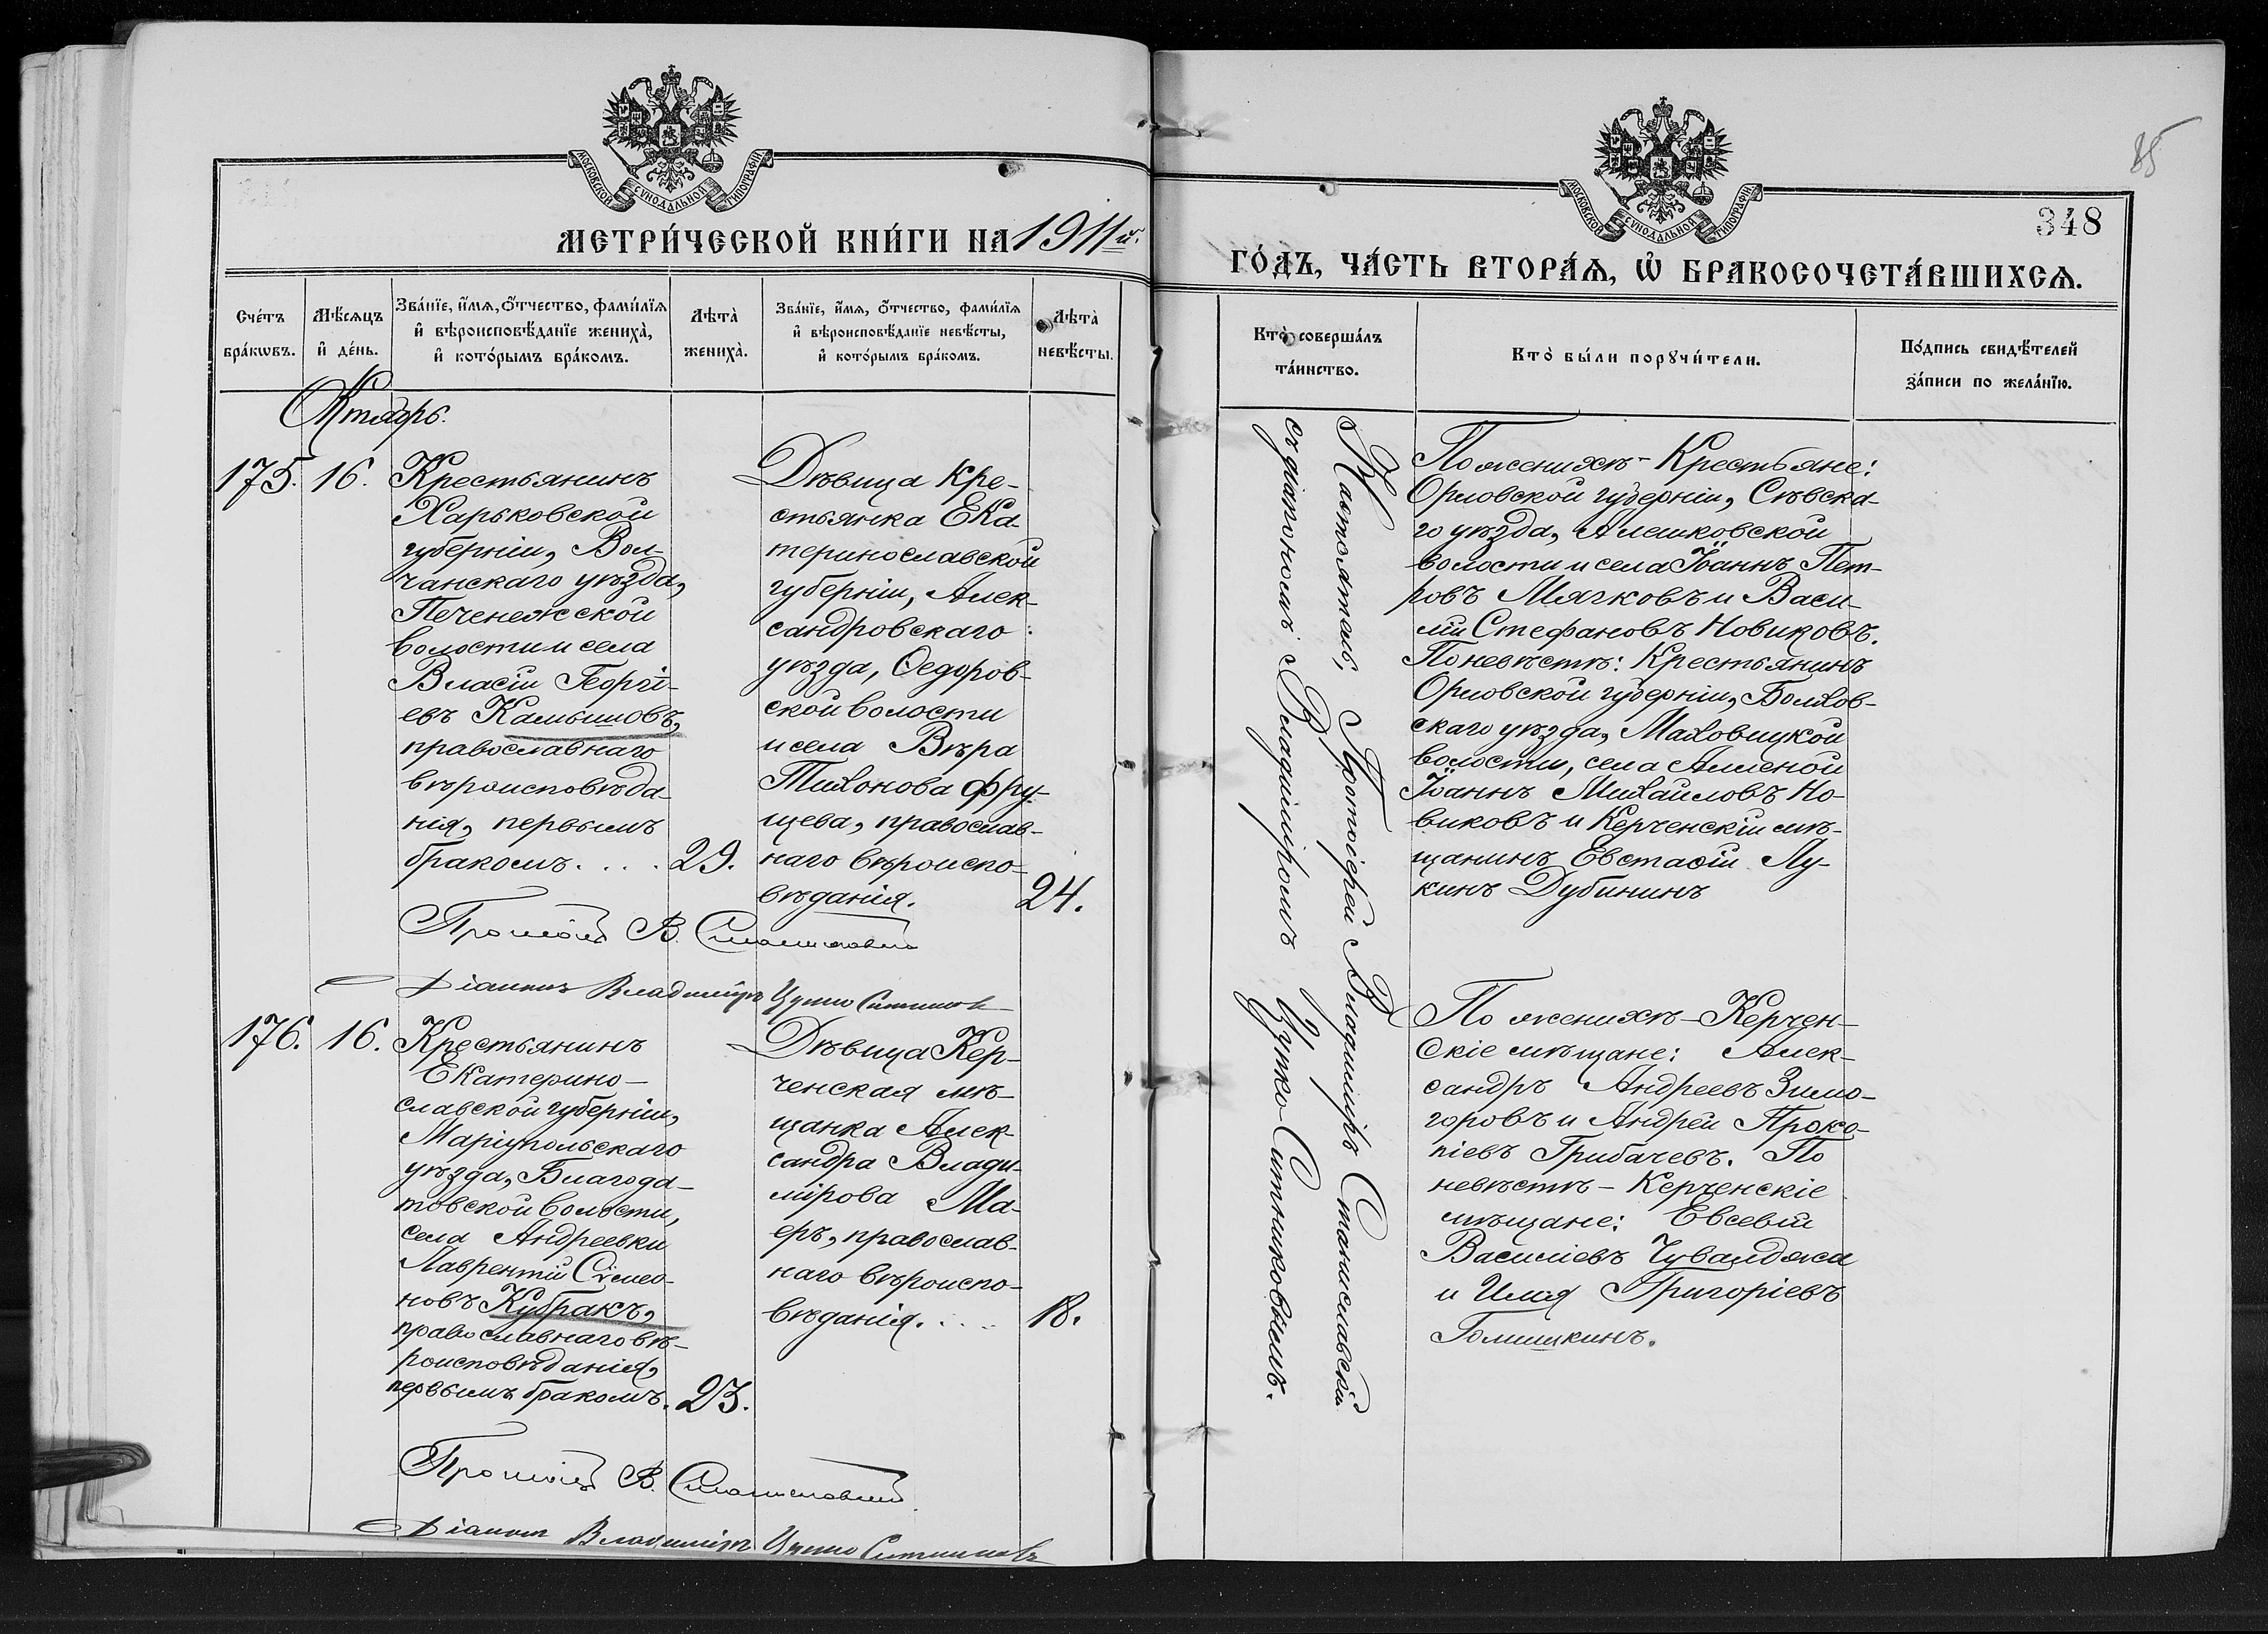 МОСКОВСКОЙ СѴНОДАЛЬНОЙ ТИПОГРАФІИ
МЕТРИ́ЧЕСКОЙ КНИ́ГИ НА 1911й.
Сче́тъ бра́кѡвъ.
Мѣ́сяцъ и҆ де́нь.
Зва́нїе, и҆́мя, ѻ҆́тчество, фами́лїя
и҆ вѣроисповѣ́данїе жениха̀,
и҆ кото́рымъ бра́комъ.
Лѣта̀ жениха̀.
Зва́нїе, и҆́мя, ѻ҆́тчество, фами́лїя
и҆ вѣроисповѣ́данїе невѣ́сты,
и҆ кото́рымъ бра́комъ.
Лѣта̀ невѣ́сты.
Октябрь.
175. 16.
Крестьянинъ
Харьковской
губерніи, Вол-
чанскаго уѣзда,
Печенежской
волости и села
Власій Георгі-
евъ Камышовъ,
православнаго
вѣроисповѣда-
нія, первымъ
бракомъ. . . . 29.
Дѣвица Кре-
стьянка Ека-
теринославской
губерніи, Алек-
сандровскаго
уѣзда, Ѳедоров-
ской волости
и села Вѣра
Тихонова Фру-
щева, православ-
наго вѣроиспо-
вѣданія. 24.
Протоіер. В. Станиславскій
Діаконъ Владиміръ Цупко Ситников
176. 16.
Крестьянинъ
Екатерино-
славской губерніи,
Маріупольскаго
уѣзда, Благода-
товской волости,
села Андреевки
Лаврентій Сѵмео-
новъ Кубракъ,
православнаго вѣ-
роисповѣданія,
первымъ бракомъ. 23.
Дѣвица Кер-
ченская мѣ-
щанка Алек-
сандра Влади-
мірова Ма-
еръ, православ-
наго вѣроиспо-
вѣданія. . . . 18.
Протоіер. В. Станиславскій
Діаконъ Владиміръ Цупко Ситниковъ
85
348
МОСКОВСКОЙ СѴНОДАЛЬНОЙ ТИПОГРАФІИ
ГО́ДЪ, ЧА́СТЬ ВТОРА́Я, Ѡ҆ БРАКОСОЧЕТА́ВШИХСЯ.
Кто̀ соверша́лъ
та́инство.
Кто̀ бы́ли порꙋчи́тели.
По́дпись свидѣ́телей
за́писи по жела́нїю.
Настоятель, Протоіерей Владиміръ Станиславскій
съ діакономъ Владиміромъ Цупко-Ситниковымъ.
По женихѣ - Крестьяне:
Орловской губерніи, Сѣвска-
го уѣзда, Алешковской
волости и села Іоаннъ Пет-
ровъ Мячковъ и Васи-
лій Стефановъ Новиковъ.
По невѣстѣ: Крестьянинъ
Орловской губерніи, Болхов-
скаго уѣзда, Маховицкой
волости, села
Іоаннъ Михайловъ Но-
виковъ и Керченскій мѣ-
щанинъ Евстафій Лу-
кинъ Дубининъ
По женихѣ - Керчен-
скіе мѣщане: Алек-
сандръ Андреевъ Зимо-
горовъ и Андрей Проко-
піевъ Грибачевъ. По
невѣстѣ - Керченскіе
мѣщане: Евсевій
Василіевъ Чувалджа
и Илія Григоріевъ
Голишкинъ.